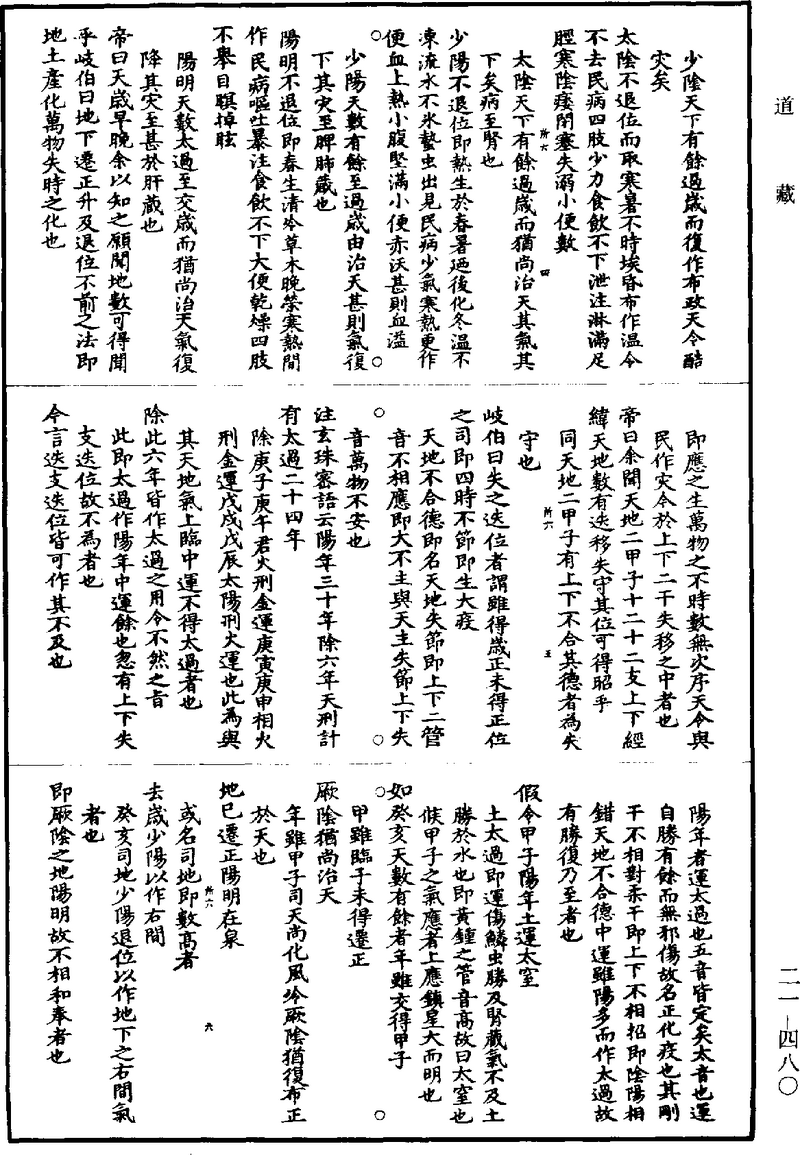 道藏
少陰天下有餘過歲而復作布政天令酷
灾矣
太陰不退位而取寒暑不時埃昏布作温令
不去民病四肢少力食飲不下泄注淋滿足
脛寒陰痿閉塞失溺小便數
太陰天下有餘過歲而猶尚治天其氣其
下矣病至腎也
少陽不退位即熱生於春暑廼後化冬温不
凍流水不氷蟄虫出見民病少氣寒熱更作
便血上熱小腹堅滿小便赤沃甚則血溢
少陽天數有餘至過歲由治天甚則氣復
下其灾至脾肺藏也
陽明不退位即春生清冷草木晚榮寒熱間
作民病嘔吐暴注食飲不下大便乾燥四肢
不舉目瞑掉眩
陽明天數太過至交歲而猶尚治天氣復
降其灾至甚於肝藏也
帝曰天歲早晚余以知之願聞地數可得聞
乎岐伯曰地下遷正升及退位不前之法即
地土產化萬物失時之化也
即應之生萬物之不時數無次序天令與
民作灾令於上下二干失移之中者也
帝曰余聞天地二甲子十二十二支上下經
緯天地數有迭移失守其位可得昭乎
同天地二甲子有上下不合其德者為失
守也
岐伯曰失之迭位者謂雖得歲正未得正位
之司即四時不節即生大疫
天地不合德即名天地失節即上下二管
音不相應即大不主與天主失節上下失
音萬物不安也
注玄珠密語云陽年三十年除六年天刑計
有太過二十四年
除庚子庚午君火刑金運庚寅庚申相火
刑金運戊戌戊辰太陽刑火運也此為與
其天地氣上臨中運不得太過者也
除此六年皆作太過之用令不然之旨
此即太過作陽年中運餘也忽有上下失
支迭位故不為者也
今言迭支迭位皆可作其不及也
陽年者運太過也五音皆定矣太音也運
自勝有餘而無邪傷故名正化疫也其剛
干不相對柔干即上下不相招即陰陽相
錯天地不合德中運雖陽多而作太過故
有勝復乃至者也
假令甲子陽年土運太窒
土太過即運傷鱗虫勝及腎藏氣不及土
勝於水也即黃鍾之管音高故曰太窒也
候甲子之氣應者上應鎮星大而明也
如癸亥天數有餘者年雖交得甲子
甲雖臨子未得遷正
厥陰猶尚治天
年雖甲子司天尚化風冷厥陰猶復布正
於天也
地已遷正陽明在泉
或名司地即數高者
去歲少陽以作右間
癸亥司地少陽退位以作地下之右間氣
者也
即厥陰之地陽明故不相和奉者也
二一—四八〇